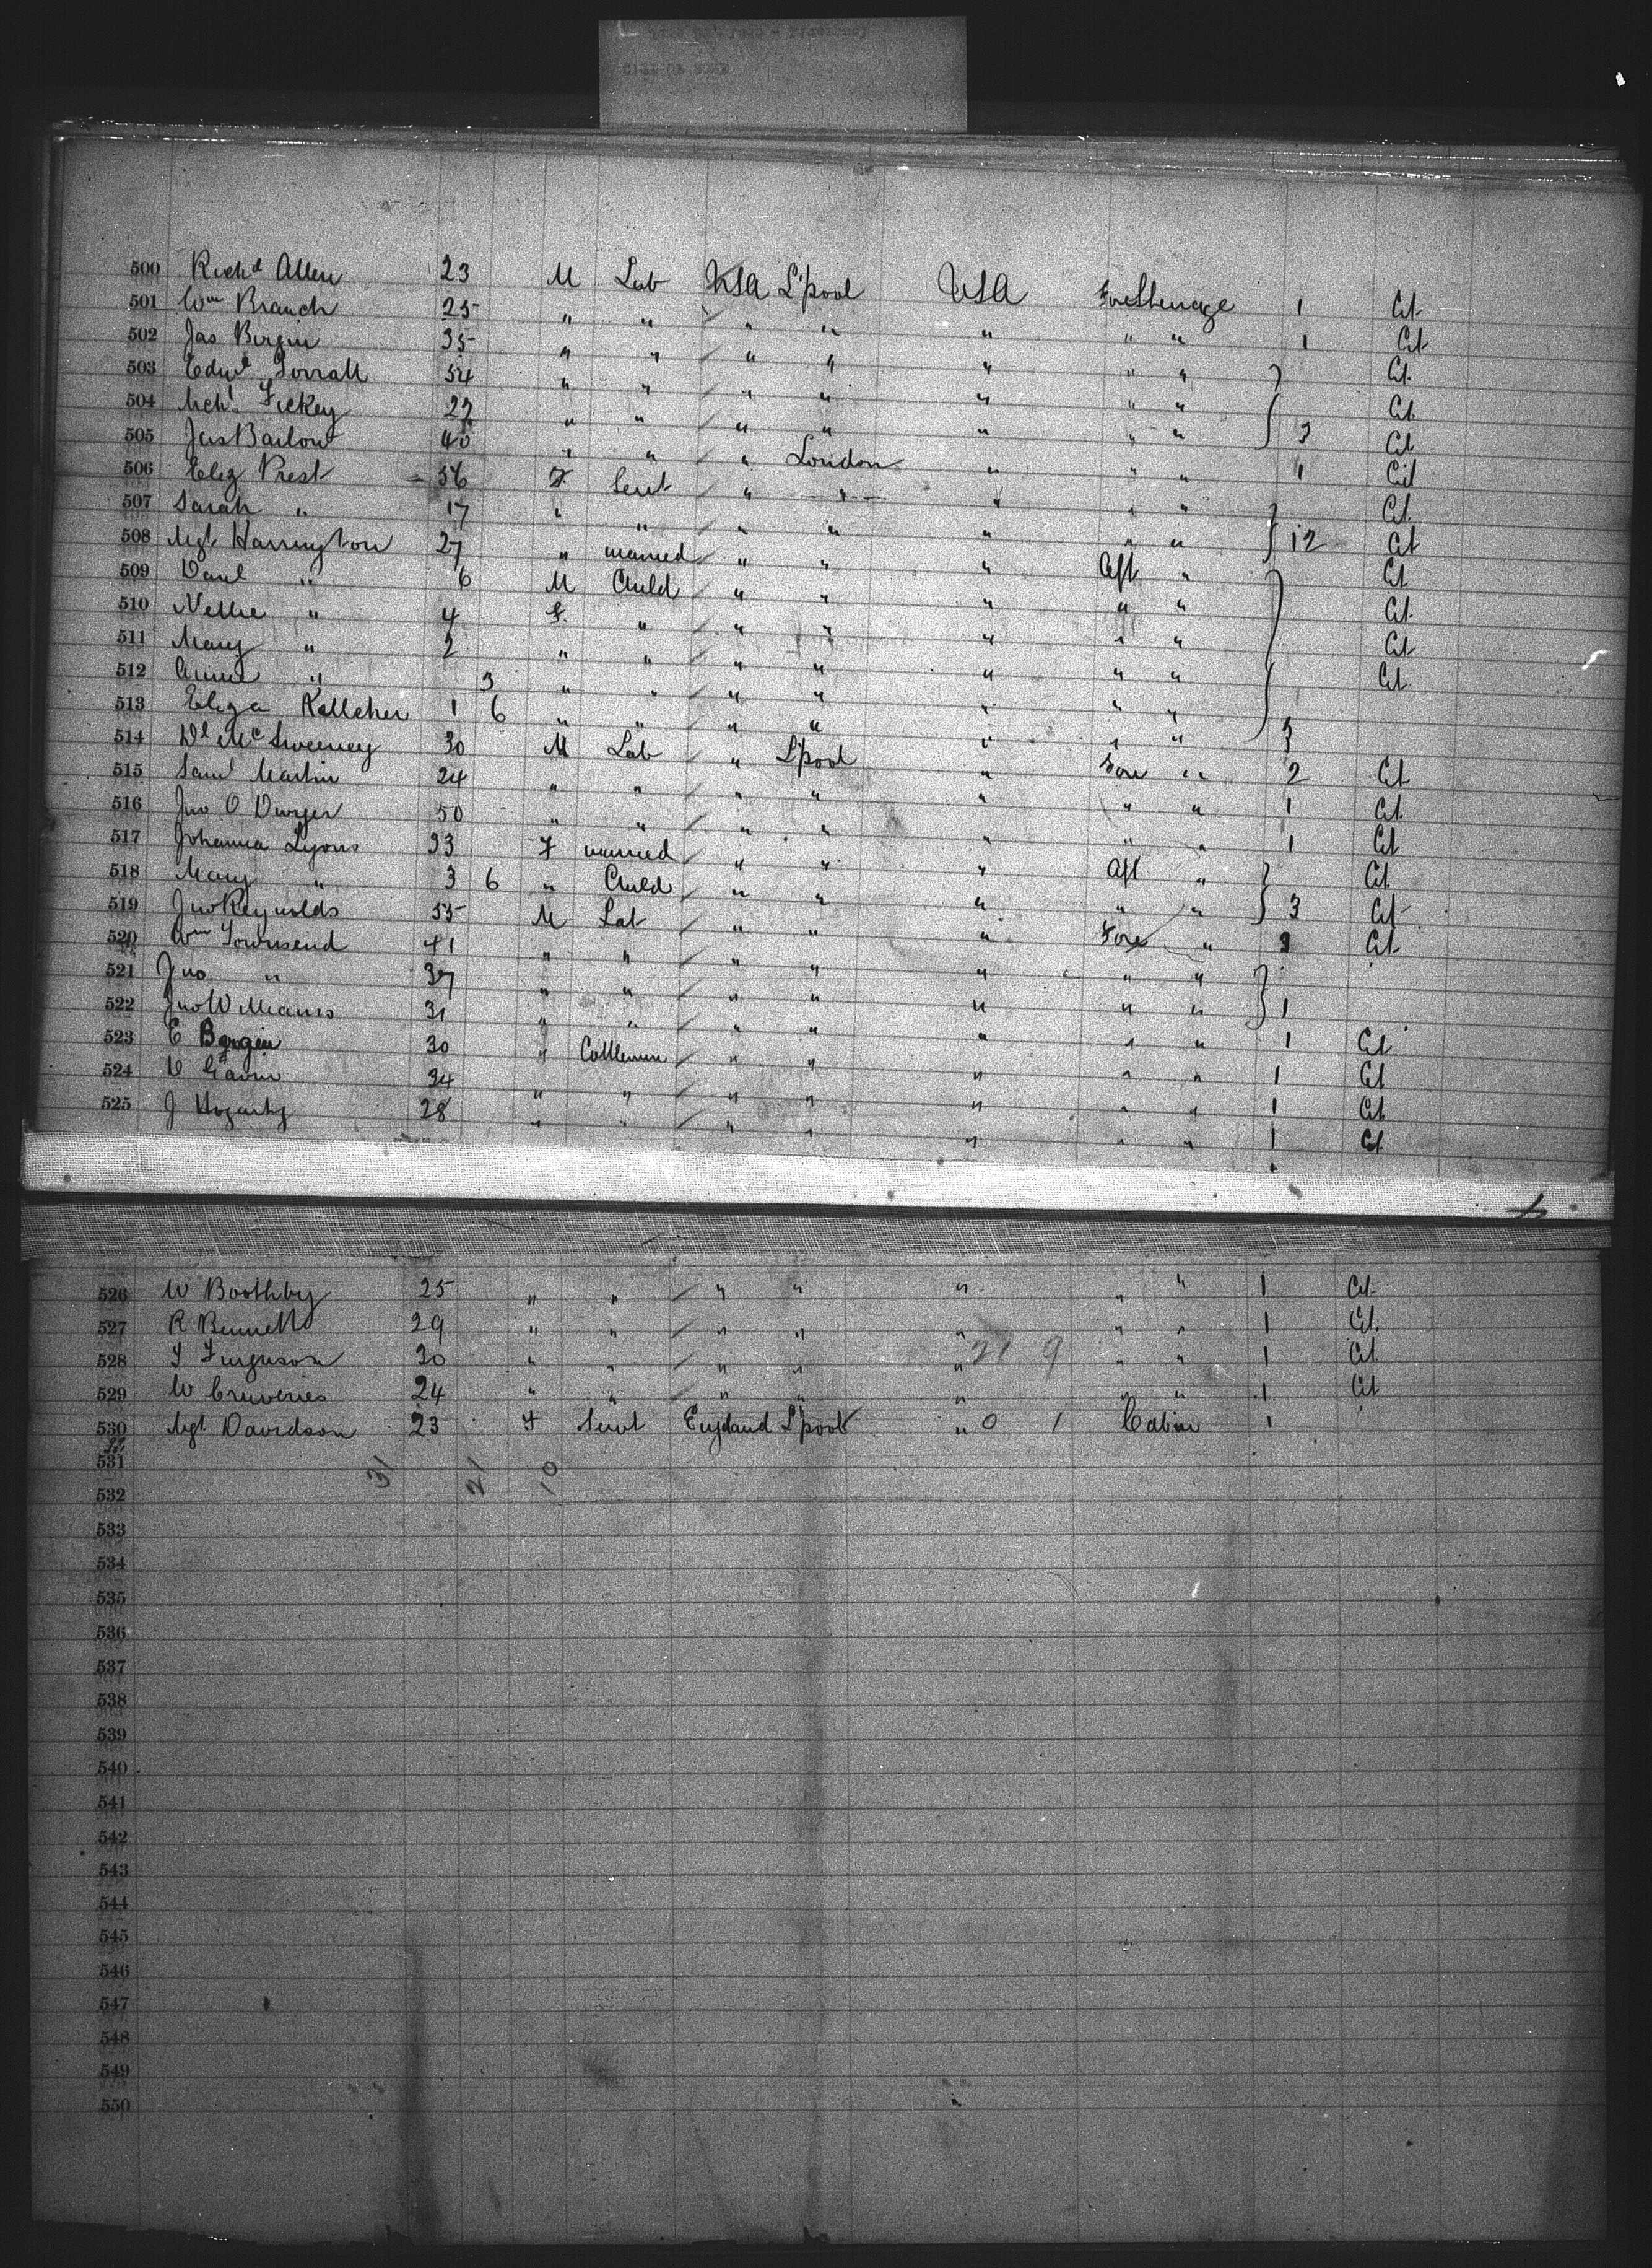 500 Richd Allen 23 M Lab USA L'pool USA Fore Steerage 1 Cit
501 Wm Branch 25 " " " " " " " 1 Cit
502 Jas Bergin 35 " " " " " " " Cit
503 Edwd 54 " " " " " " " Cit
504 Mchl Fickey " " " " " " " 3 Cit
505 Jas Barlow 40 " " " London " " " 1 Cit
506 Eliz Prest 56 F Servt " " " " " Cit
507 Sarah " 17 " " " " " " " 12 Cit
508 Mgt Harrington 27 " married " " " Aft " Cit
509 Danl " 6 M Child " " " " " Cit
510 Nellie " 4 F " " " " " " Cit
511 Mary " 2 " " " " " " " Cit
512 Annie " 3 " " " " " " "
513 Eliza Kelleher 1 6 " " " " " " " 3
514 Dl McSweeney 30 M Lab " L'pool " Fore " 2 Cit
515 Saml Martin 24 " " " " " " " 1 Cit
516 Jno O Dwyer 50 " " " " " " " 1 Cit
517 Johanna Lyons 33 F married " " " Aft " Cit
518 Mary " 3 6 " Child " " " " " 3 Cit
519 Jno Reynolds 55 M Lab " " " Fore " Cit
520 Wm Townsend 41 " " " " " " "
521 Jno " 37 " " " " " " " 1
522 Jno Williams 31 " " " " " " " 1 Cit
523 E Bergin 30 " Cattleman " " " " " 1 Cit
524 Gavin 34 " " " " " " " 1 Cit
525 J Hogarty 28 " " " " " " " 1 Cit
526 W Boothby 25 " " " " " " " 1 Cit
527 R Bennett 29 " " " " " " " 1 Cit
528 Ferguson 30 " " " " " 21 9 " " 1 Cit
529 W 24 " " " " " " " 1 Cit
530 Mgt Davidson 23 F Servt England L'pool " 0 1 Cabin 1
531 31 21 10
532
533
534
535
536
537
538
539
540
541
542
543
544
545
546
547
548
549
550